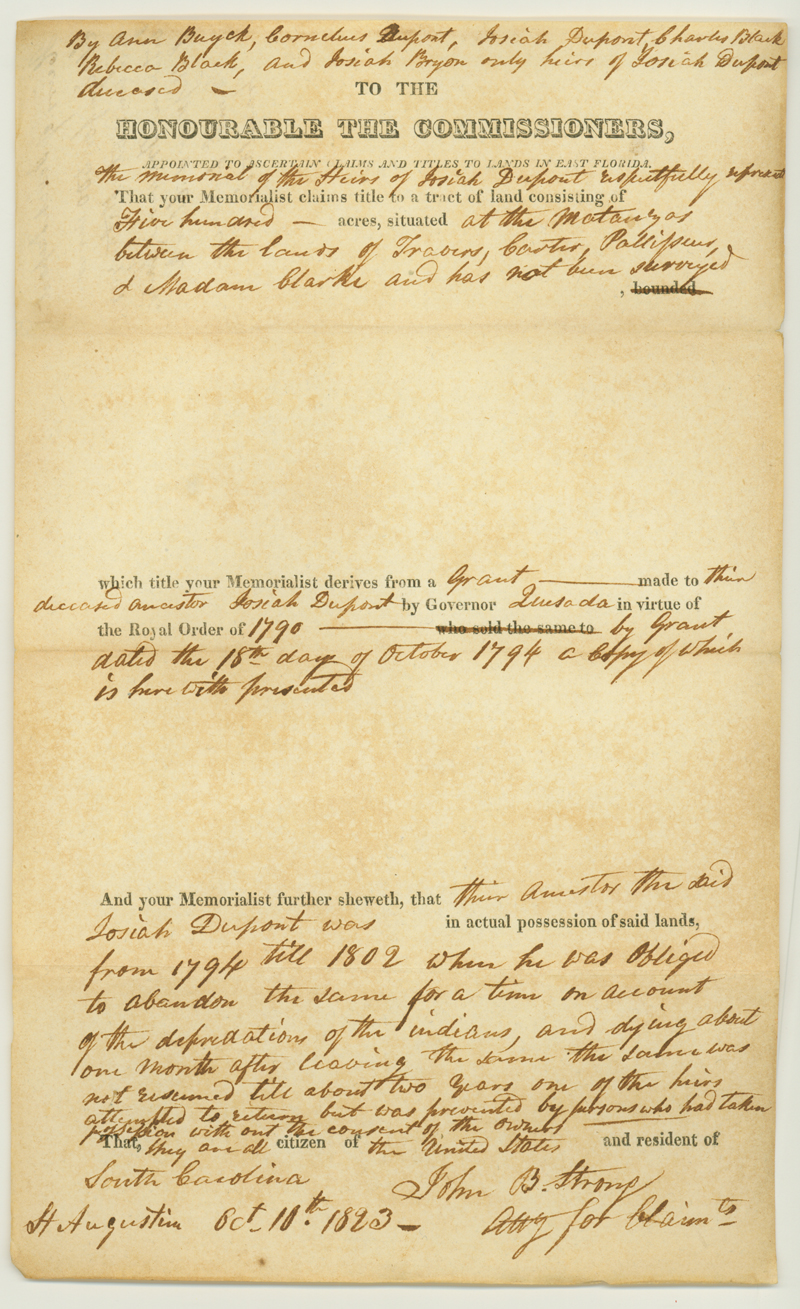 By Ann Buyck, Cornelius Dupont, Josiah Dupont, Charles Black
Rebecca Black, and Josiah Bryon only heirs of Josiah Dupont
deceased —
TO THE
HONOURABLE THE COMMISSIONERS,
APPOINTED TO ASCERTAIN CLAIMS AND TITLES TO LANDS IN EAST FLORIDA.
The memorial of the Heirs of Josiah Dupont respectfully represent
That your Memorialist claims title to a tract of land consisting of
Five hundred — acres, situated at the Matanzas
between the lands of Travers, Carter, Pallisseur,
& Madam Clarke and has not been surveyed
, bounded
which title your Memorialist derives from a Grant — made to their
deceased ancestor Josiah Dupont by Governor Quesada in virtue of
the Royal Order of 1790 — who sold the same to by Grant
dated the 18th day of October 1794 a Copy of which
is here with presented
And your Memorialist further sheweth, that their Ancestor the said
Josiah Dupont was in actual possession of said lands,
from 1794 till 1802 when he was obliged
to abandon the same for a time on account
of the depredations of the indians, and dying about
one month after leaving the same the same was
not resumed till about two years one of the heirs
attempted to return but was prevented by persons who had taken
possession with out the consent of the owners
That, they are all citizen of the United States and resident of
South Carolina
John B. Strong
St Augustin Oct 10th. 1823 — Atty for Claimts